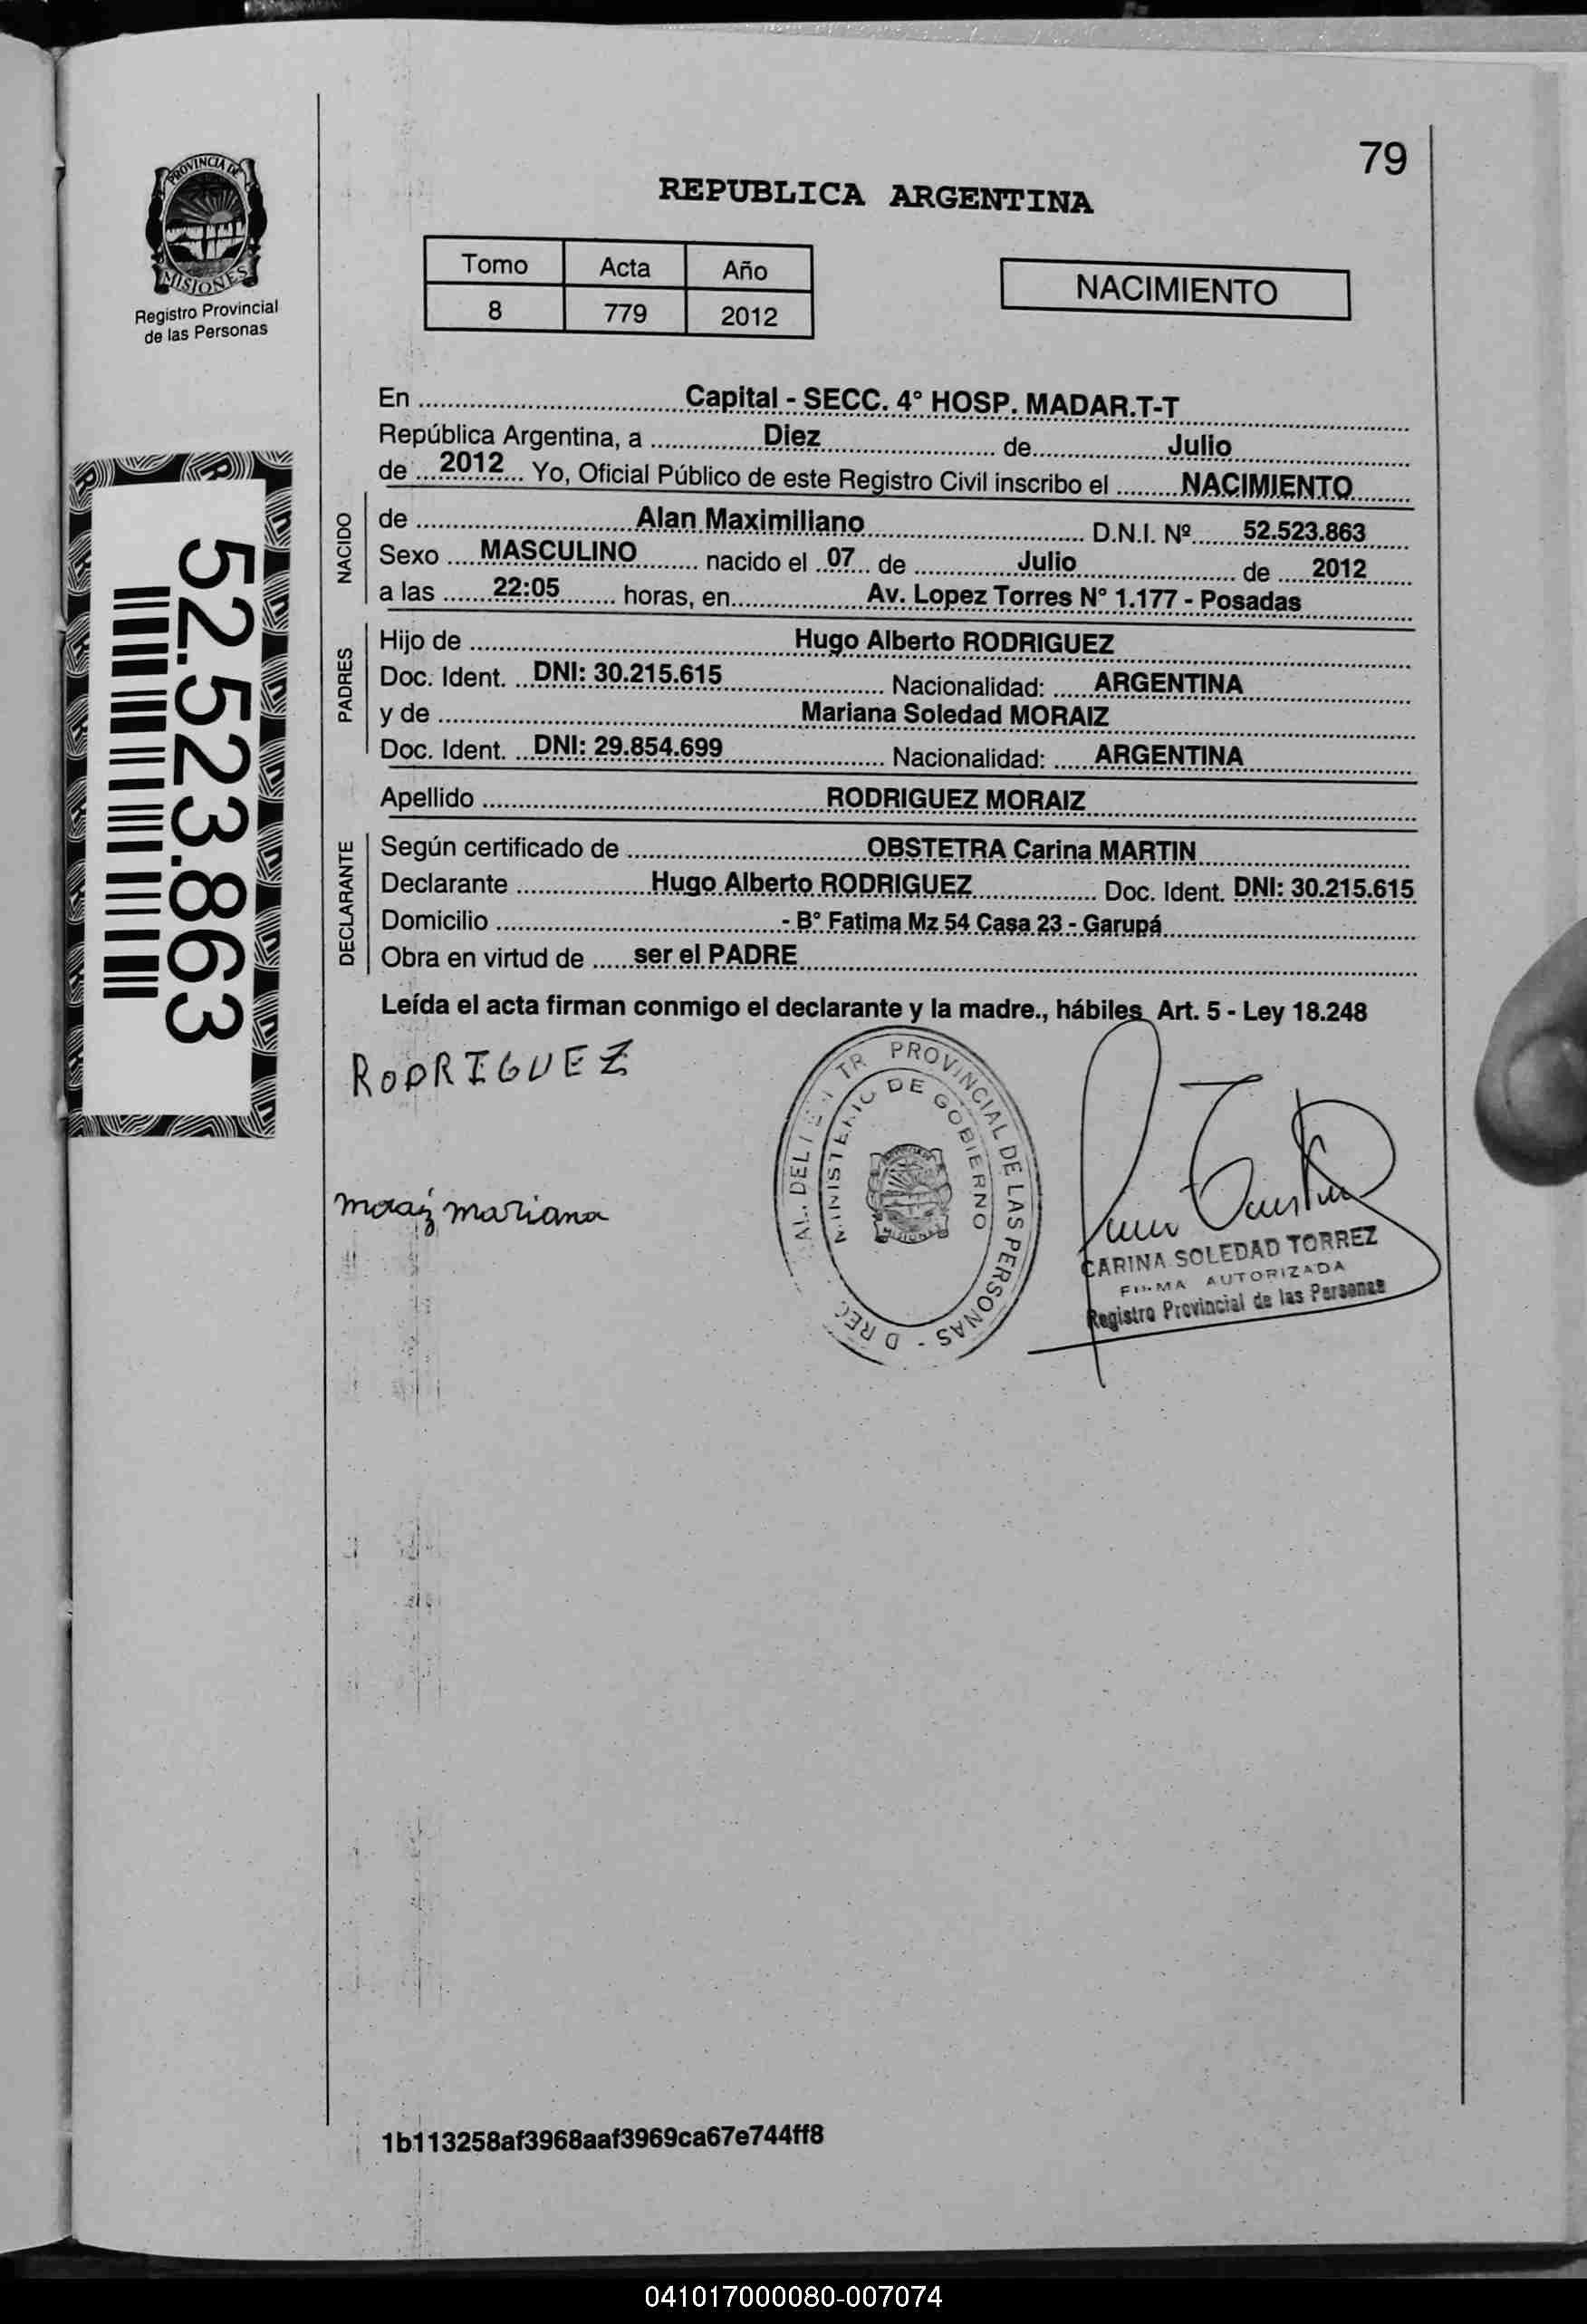 79
PROVINCIA DE
MISIONES
Registro Provincial
de las Personas
REPUBLICA ARGENTINA
Tomo Acta Año
8 779 2012
NACIMIENTO
52.523.863
En Capital - SECC. 4° HOSP. MADAR.T-T
República Argentina, a Diez de Julio
de 2012 Yo, Oficial Público de este Registro Civil inscribo el NACIMIENTO
NACIDO
de Alan Maximiliano D.N.I. Nº 52.523.863
Sexo MASCULINO nacido el 07 de Julio de 2012
a las 22:05 horas, en Av. Lopez Torres N° 1.177 - Posadas
PADRES
Hijo de Hugo Alberto RODRIGUEZ
Doc. Ident. DNI: 30.215.615 Nacionalidad: ARGENTINA
y de Mariana Soledad MORAIZ
Doc. Ident. DNI: 29.854.699 Nacionalidad: ARGENTINA
Apellido RODRIGUEZ MORAIZ
DECLARANTE
Según certificado de OBSTETRA Carina MARTIN
Declarante Hugo Alberto RODRIGUEZ Doc. Ident. DNI: 30.215.615
Domicilio - B° Fatima Mz 54 Casa 23 - Garupá
Obra en virtud de ser el PADRE
Leída el acta firman conmigo el declarante y la madre., hábiles Art. 5 - Ley 18.248
RODRIGUEZ
Moraiz mariana
PROVINCIAL DE LAS PERSONAS
MINISTERIO DE GOBIERNO
MISIONES
CARINA SOLEDAD TORREZ
FIRMA AUTORIZADA
Registro Provincial de las Personas
1b113258af3968aaf3969ca67e744ff8
041017000080-007074